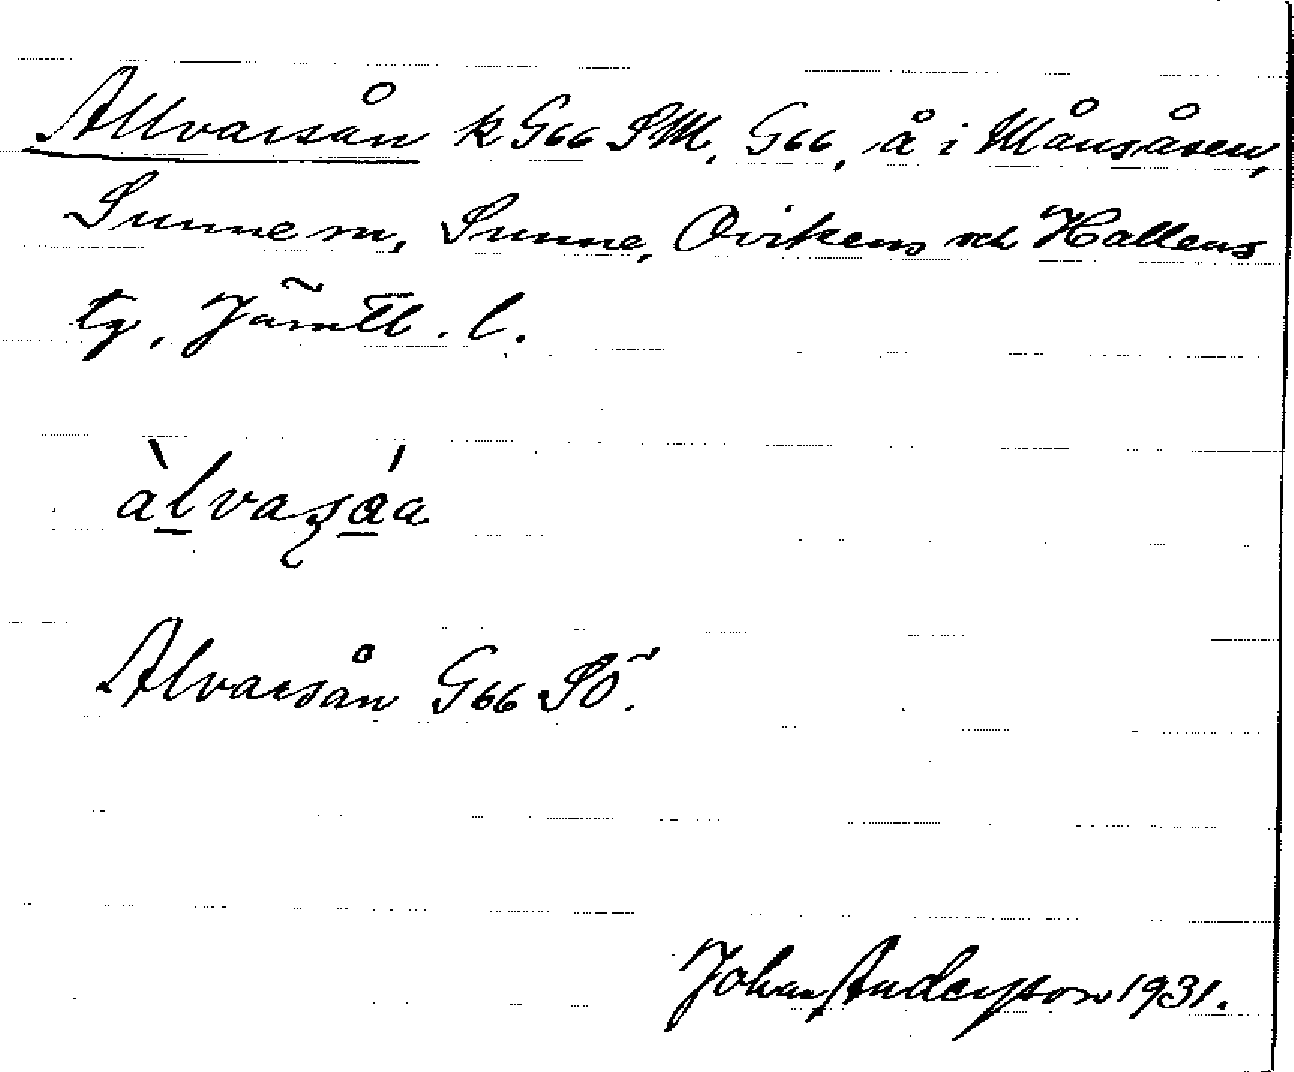 Allvarsån k G66 SM, G66, å i Månsåsen,
Sunne sn, Sunne, Ovikens och Hallens
tg, Jämtl. l.
àl̲vaʂá̲a
Alvarsån G66 SÖ.
Johan Anderson 1931.